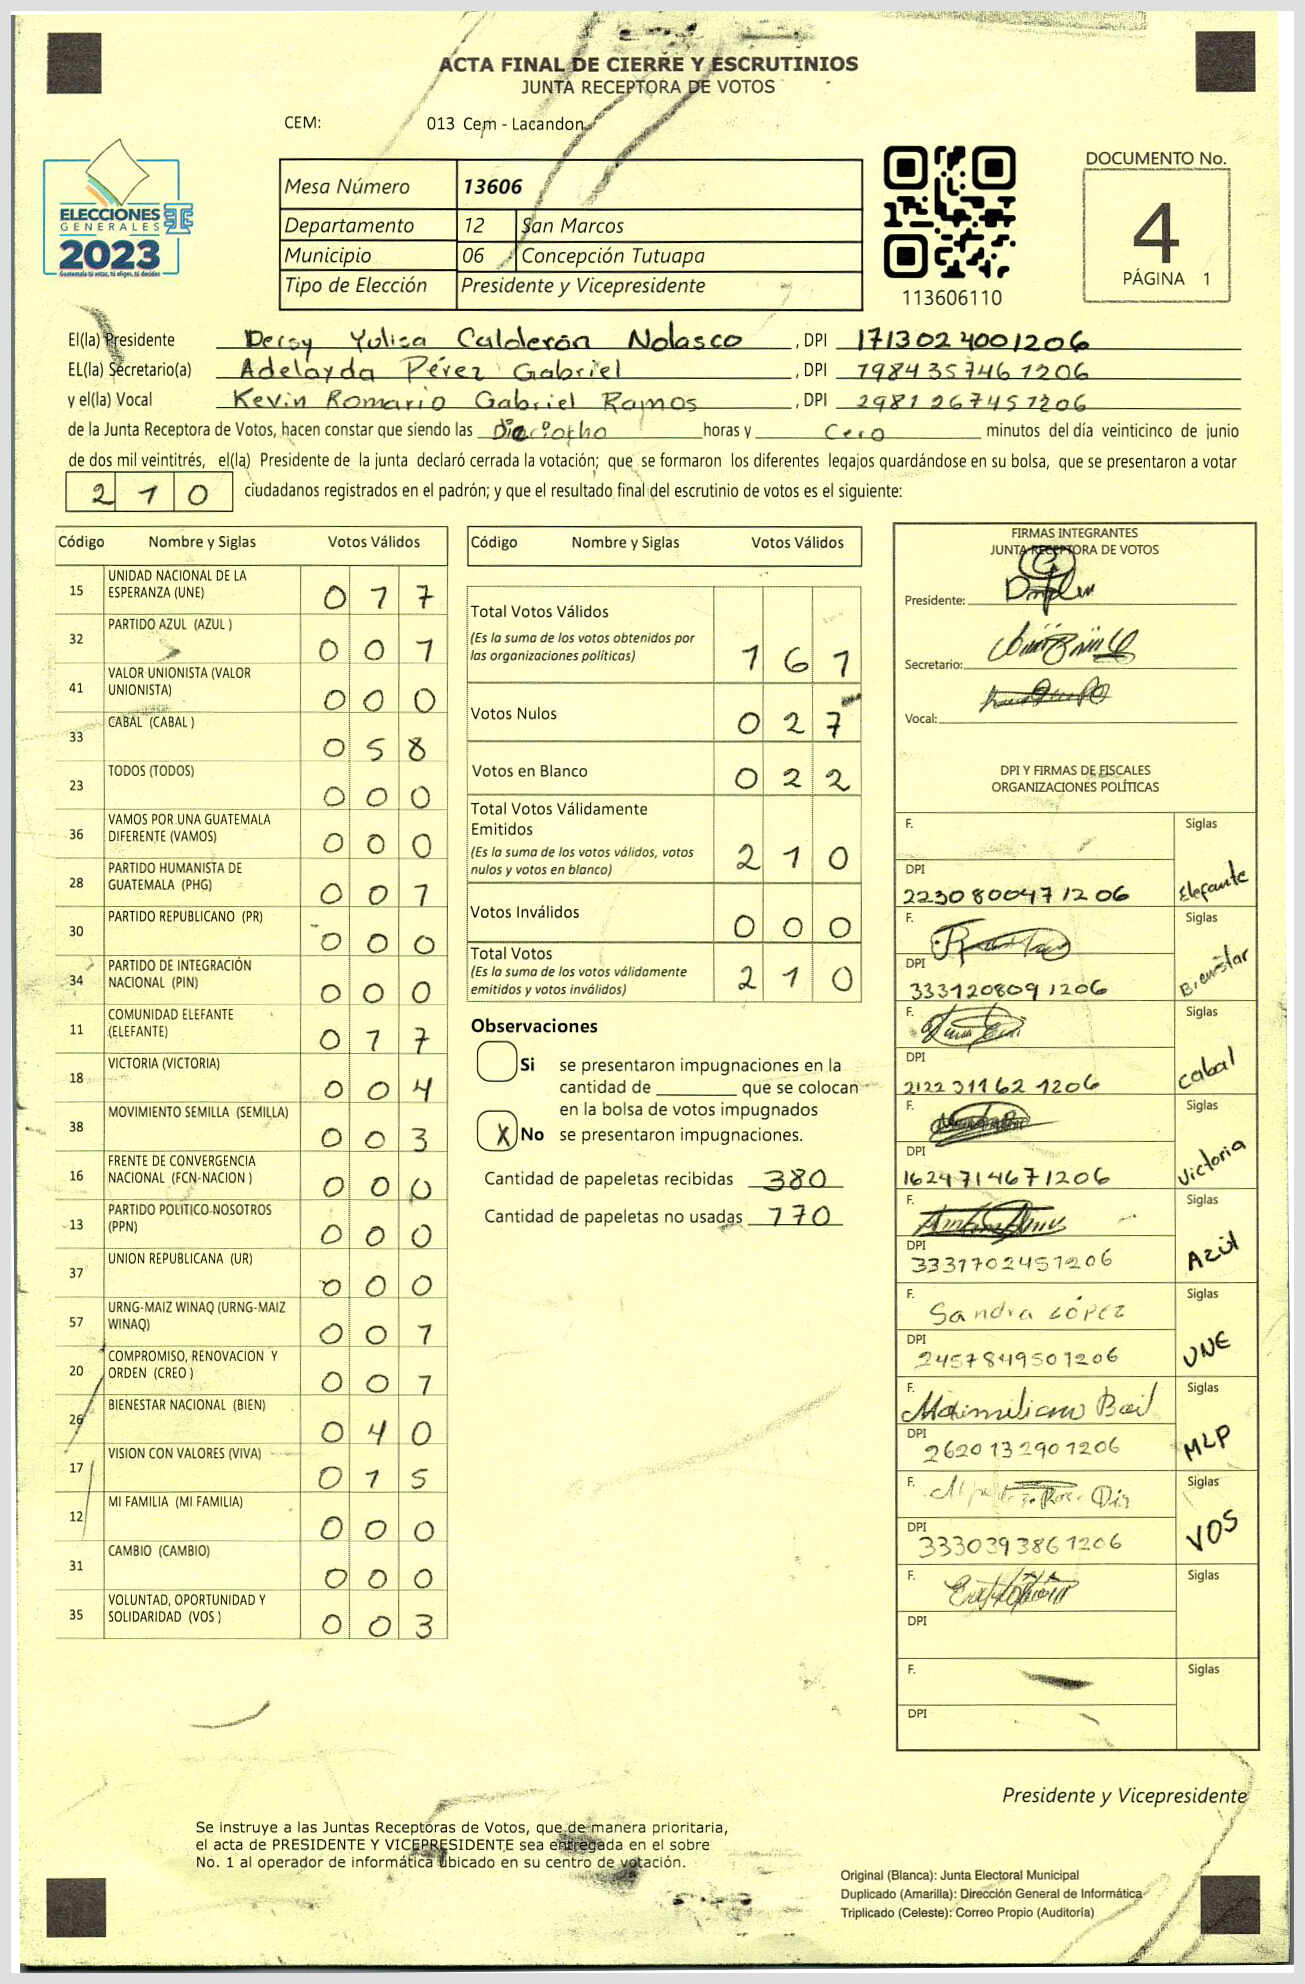 ACTA FINAL DE CIERRE Y ESCRUTINIOS
JUNTA RECEPTORA DE VOTOS
CEM: 013 Cem - Lacandon
ELECCIONES
GENERALES
2023
Guatemala tú votas, tú eliges, tú decides
Mesa Número 13606
Departamento 12 San Marcos
Municipio 06 Concepción Tutuapa
Tipo de Elección Presidente y Vicepresidente
113606110
DOCUMENTO No.
4
PÁGINA 1
El(la) Presidente Dersy Yulisa Calderón Nolasco, DPI 1713024001206
EL(la) Secretario(a) Adelayda Pérez Gabriel, DPI 1984357461206
y el(la) Vocal Kevin Romario Gabriel Ramos, DPI 2981267451206
de la Junta Receptora de Votos, hacen constar que siendo las Dieciocho horas y Cero minutos del día veinticinco de junio
de dos mil veintitrés, el(la) Presidente de la junta declaró cerrada la votación; que se formaron los diferentes legajos quardándose en su bolsa, que se presentaron a votar
210 ciudadanos registrados en el padrón; y que el resultado final del escrutinio de votos es el siguiente:
Código Nombre y Siglas Votos Válidos
15 UNIDAD NACIONAL DE LA ESPERANZA (UNE) 017
32 PARTIDO AZUL (AZUL ) 001
41 VALOR UNIONISTA (VALOR UNIONISTA) 000
33 CABAL (CABAL ) 058
23 TODOS (TODOS) 000
36 VAMOS POR UNA GUATEMALA DIFERENTE (VAMOS) 000
28 PARTIDO HUMANISTA DE GUATEMALA (PHG) 001
30 PARTIDO REPUBLICANO (PR) 000
34 PARTIDO DE INTEGRACIÓN NACIONAL (PIN) 000
11 COMUNIDAD ELEFANTE (ELEFANTE) 017
18 VICTORIA (VICTORIA) 004
38 MOVIMIENTO SEMILLA (SEMILLA) 003
16 FRENTE DE CONVERGENCIA NACIONAL (FCN-NACION ) 000
13 PARTIDO POLITICO NOSOTROS (PPN) 000
37 UNION REPUBLICANA (UR) 000
57 URNG-MAIZ WINAQ (URNG-MAIZ WINAQ) 001
20 COMPROMISO, RENOVACION Y ORDEN (CREO ) 001
26 BIENESTAR NACIONAL (BIEN) 040
17 VISION CON VALORES (VIVA) 015
12 MI FAMILIA (MI FAMILIA) 000
31 CAMBIO (CAMBIO) 000
35 VOLUNTAD, OPORTUNIDAD Y SOLIDARIDAD (VOS ) 003
Código Nombre y Siglas Votos Válidos
Total Votos Válidos 161
(Es la suma de los votos obtenidos por
las organizaciones políticas)
Votos Nulos 027
Votos en Blanco 022
Total Votos Válidamente
Emitidos 210
(Es la suma de los votos válidos, votos
nulos y votos en blanco)
Votos Inválidos 000
Total Votos 210
(Es la suma de los votos válidamente
emitidos y votos inválidos)
Observaciones
Si se presentaron impugnaciones en la
cantidad de ________ que se colocan
en la bolsa de votos impugnados
X No se presentaron impugnaciones.
Cantidad de papeletas recibidas 380
Cantidad de papeletas no usadas 170
FIRMAS INTEGRANTES
JUNTA RECEPTORA DE VOTOS
Presidente:
Secretario:
Vocal:
DPI Y FIRMAS DE FISCALES
ORGANIZACIONES POLÍTICAS
F. Siglas
DPI
2230800471206 Elefante
F. Siglas
DPI
3331208091206 Bienestar
F. Siglas
DPI
2122311621206 Cabal
F. Siglas
DPI
1624714671206 Victoria
F. Siglas
DPI
3331702451206 Azúl
F. Siglas
Sandra LÓPEZ
DPI
2457849501206 UNE
F. Siglas
Maximiliano
DPI
2620132901206 MLP
F. Siglas
DPI
3330393861206 VOS
F. Siglas
DPI
F. Siglas
DPI
Presidente y Vicepresidente
Se instruye a las Juntas Receptoras de Votos, que de manera prioritaria,
el acta de PRESIDENTE Y VICEPRESIDENTE sea entregada en el sobre
No. 1 al operador de informática ubicado en su centro de votación.
Original (Blanca): Junta Electoral Municipal
Duplicado (Amarilla): Dirección General de Informática
Triplicado (Celeste): Correo Propio (Auditoría)